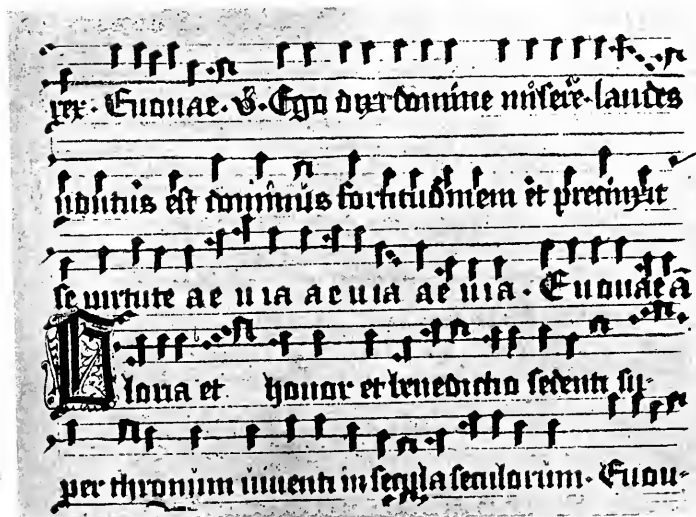 rex. Euouae. V. Ego dixi domine misere. laudes
Indutus est dominus fortitudinem et precinxit
se uirtute ae u ia a e uia ae uia. Euouae ā
Gloria et honor et benedictio sedenti su-
per thronum uiuenti in secula seculorum. Euou-